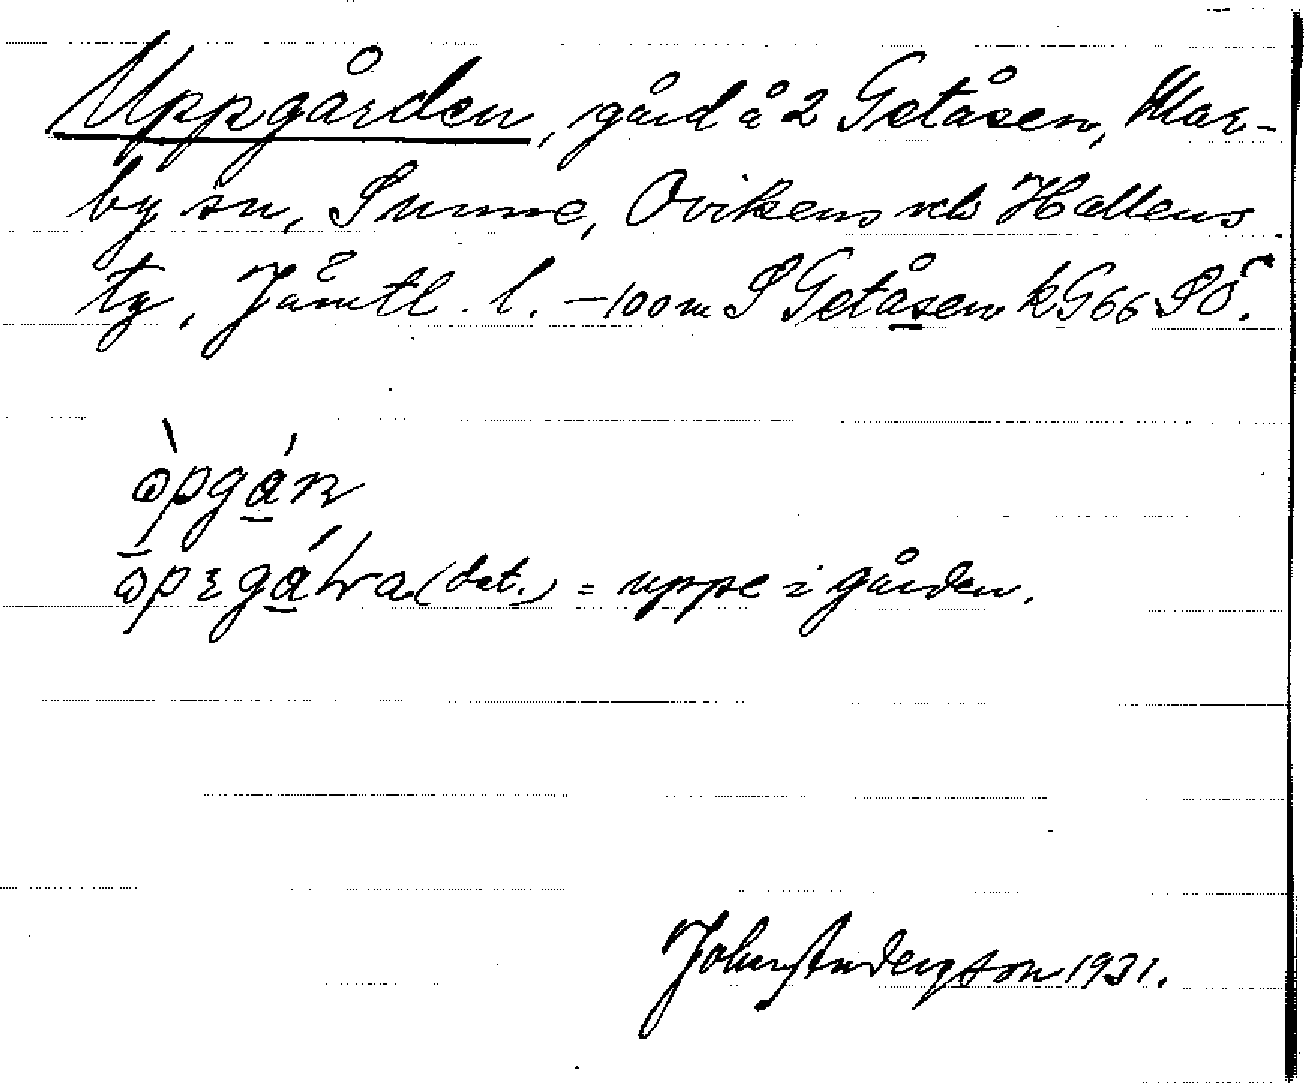 Uppgården, gård å 2 Getåsen, Mar-
by sn, Sunne, Ovikens och Hallens
tg, Jämtl. l. –100 m S Getåsen kG66 SÖ.
(dat.) = uppe i gården.
Andersson 1931.